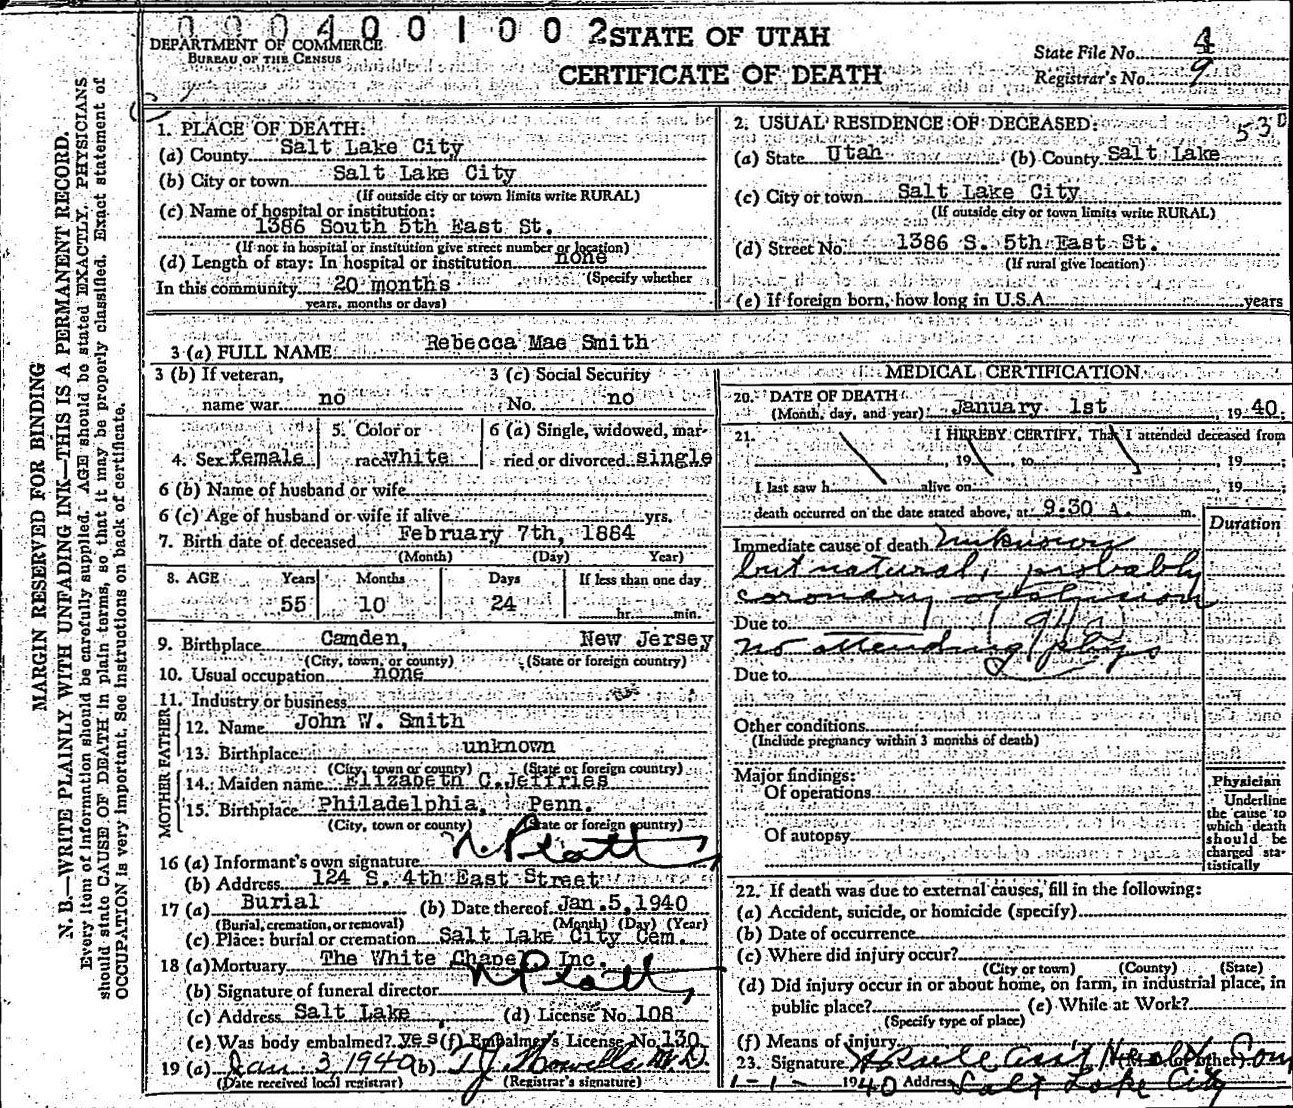 0004001002 STATE OF UTAH
DEPARTMENT OF COMMERCE
BUREAU OF THE CENSUS
CERTIFICATE OF DEATH
State File No. 4
Registrar's No. 9
MARGIN RESERVED FOR BINDING
N. B.—WRITE PLAINLY WITH UNFADING INK—THIS IS A PERMANENT RECORD.
Every item of information should be carefully supplied. AGE should be stated EXACTLY. PHYSICIANS
should state CAUSE OF DEATH in plain terms, so that it may be properly classified. Exact statement of
OCCUPATION is very important. See instructions on back of certificate.
1. PLACE OF DEATH:
(a) County Salt Lake City
(b) City or town Salt Lake City
(If outside city or town limits write RURAL)
(c) Name of hospital or institution:
1386 South 5th East St.
(If not in hospital or institution give street number or location)
(d) Length of stay: In hospital or institution none
(Specify whether
In this community 20 months
years, months or days)
2. USUAL RESIDENCE OF DECEASED: 530
(a) State Utah (b) County Salt Lake
(c) City or town Salt Lake City
(If outside city or town limits write RURAL)
(d) Street No. 1386 S. 5th East St.
(If rural give location)
(e) If foreign born, how long in U.S.A. years
3 (a) FULL NAME Rebecca Mae Smith
3 (b) If veteran, 3 (c) Social Security
name war no No. no
4. Sex female 5. Color or race white 6 (a) Single, widowed, married or divorced single
6 (b) Name of husband or wife
6 (c) Age of husband or wife if alive yrs.
7. Birth date of deceased February 7th, 1884
(Month) (Day) Year)
8. AGE Years Months Days If less than one day
55 10 24 hr. min.
9. Birthplace Camden, New Jersey
(City, town, or county) (State or foreign country)
10. Usual occupation none
11. Industry or business
FATHER
12. Name John W. Smith
13. Birthplace unknown
(City, town or county) (State or foreign country)
MOTHER
14. Maiden name Elizabeth C. Jeffries
15. Birthplace Philadelphia, Penn.
(City, town or county) (State or foreign country)
16 (a) Informant's own signature N. Platt
(b) Address 124 S. 4th East Street
17 (a) Burial (b) Date thereof Jan. 5, 1940
(Burial, cremation, or removal) (Month) (Day) (Year)
(c) Place: burial or cremation Salt Lake City Cem.
18 (a) Mortuary The White Chapel, Inc.
(b) Signature of funeral director N Platt
(c) Address Salt Lake, (d) License No. 108
(e) Was body embalmed? yes (f) Embalmer's License No. 130
19 (a) Jan. 3, 1940 (b) T J Howells M.D.
(Date received local registrar) (Registrar's signature)
MEDICAL CERTIFICATION
20. DATE OF DEATH
(Month, day, and year) January 1st, 1940;
21. I HEREBY CERTIFY, That I attended deceased from
, 19 , to , 19 ;
I last saw h alive on , 19 ;
death occurred on the date stated above, at 9:30 A. m.
Duration
Immediate cause of death Unknown
but natural, probably
coronary occlusion
Due to (94a)
no attending phys
Due to
Other conditions
(Include pregnancy within 3 months of death)
Major findings:
Of operations
Of autopsy
Physician
Underline
the cause to
which death
should be
charged sta-
tistically
22. If death was due to external causes, fill in the following:
(a) Accident, suicide, or homicide (specify)
(b) Date of occurrence
(c) Where did injury occur?
(City or town) (County) (State)
(d) Did injury occur in or about home, on farm, in industrial place, in
public place? (e) While at Work?
(Specify type of place)
(f) Means of injury
23. Signature Ass't Health Com
1-1- 1940 Address Salt Lake City